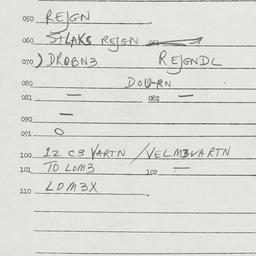 050 REJGN
060 STLAKS REJGN 061
070 ) DROBN3 REJGNDL
080 DOVRN
081 — 082 —
090 —
091 O
100 12 C3 VARTN / VELM3VARTN
101 TO LOM3 102 —
110 LOM3X